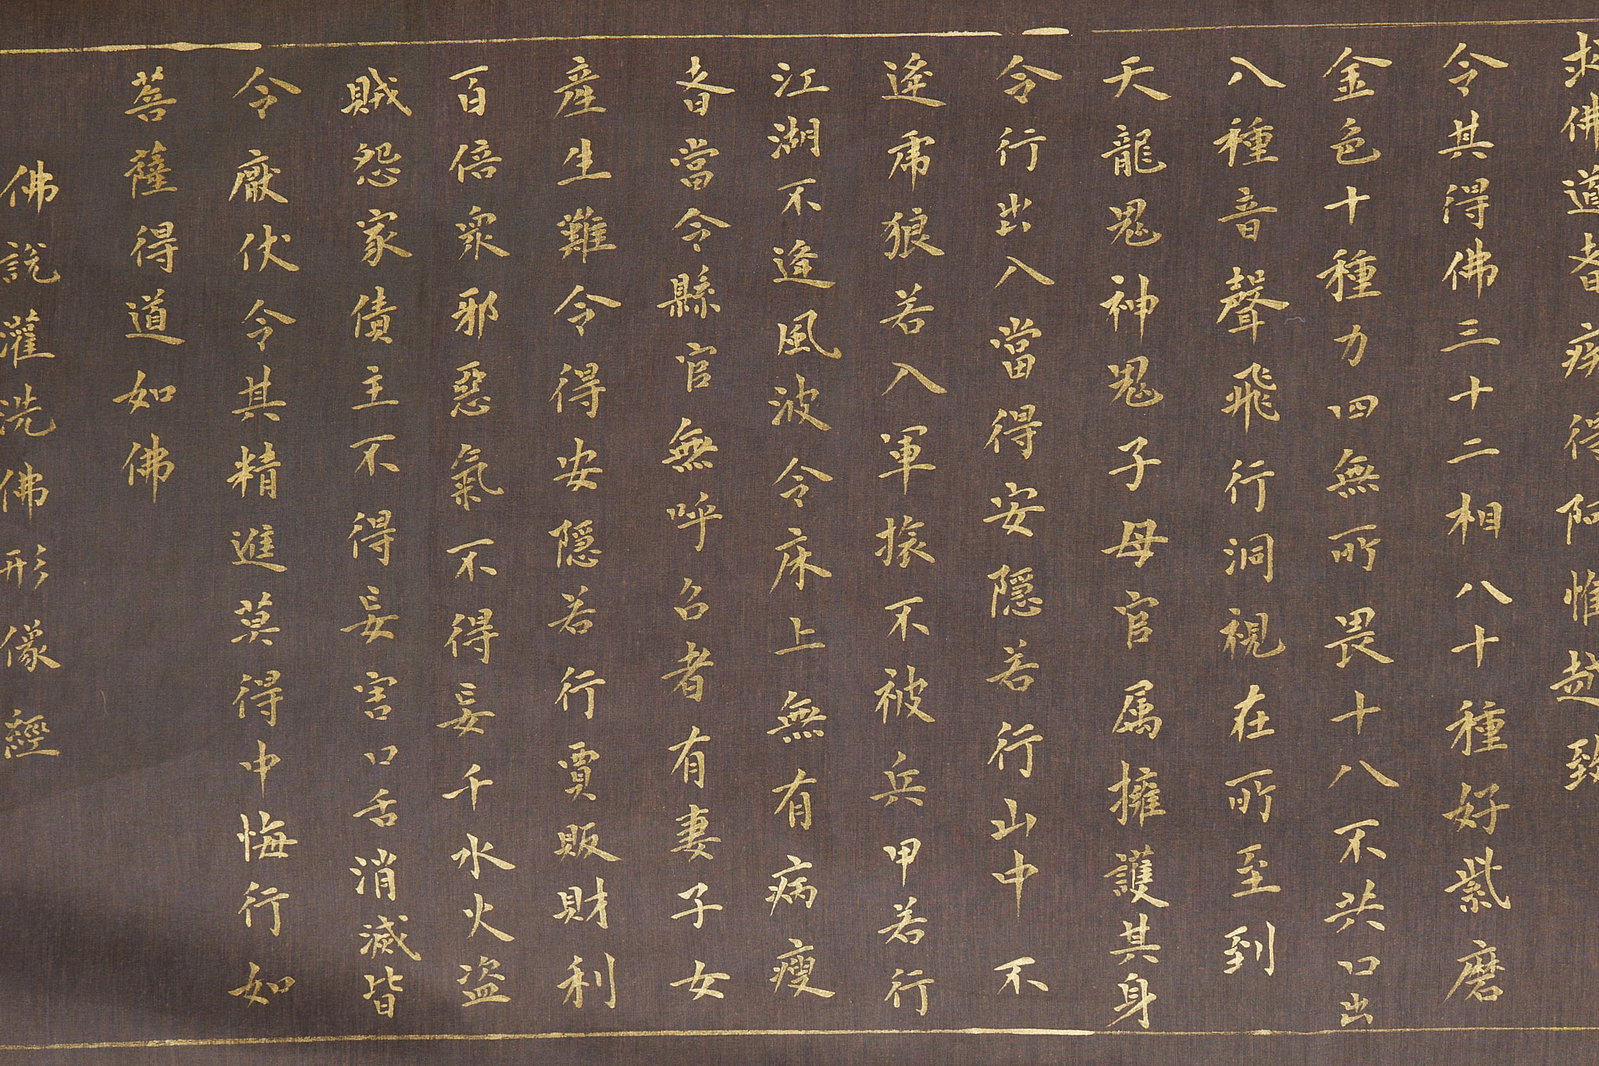 求佛道者疾得阿惟越致
令其得佛三十二相八十種好紫磨
金色十種力四無所畏十八不共口出
八種音聲飛行洞視在所至到
天龍鬼神鬼子母官属擁護其身
令行出入當得安隱若行山中不
逢虎狼若入軍掁不被兵甲若行
江湖不逢風波令床上無有病瘦
者當令縣官無呼名者有妻子女
産生難令得安隱若行賈販財利
百倍衆邪惡氣不得妄千水火盗
賊怨家債主不得妄害口舌消滅皆
令厭伏令其精進莫得中悔行如
菩薩得道如佛
佛説灌洗佛形像經